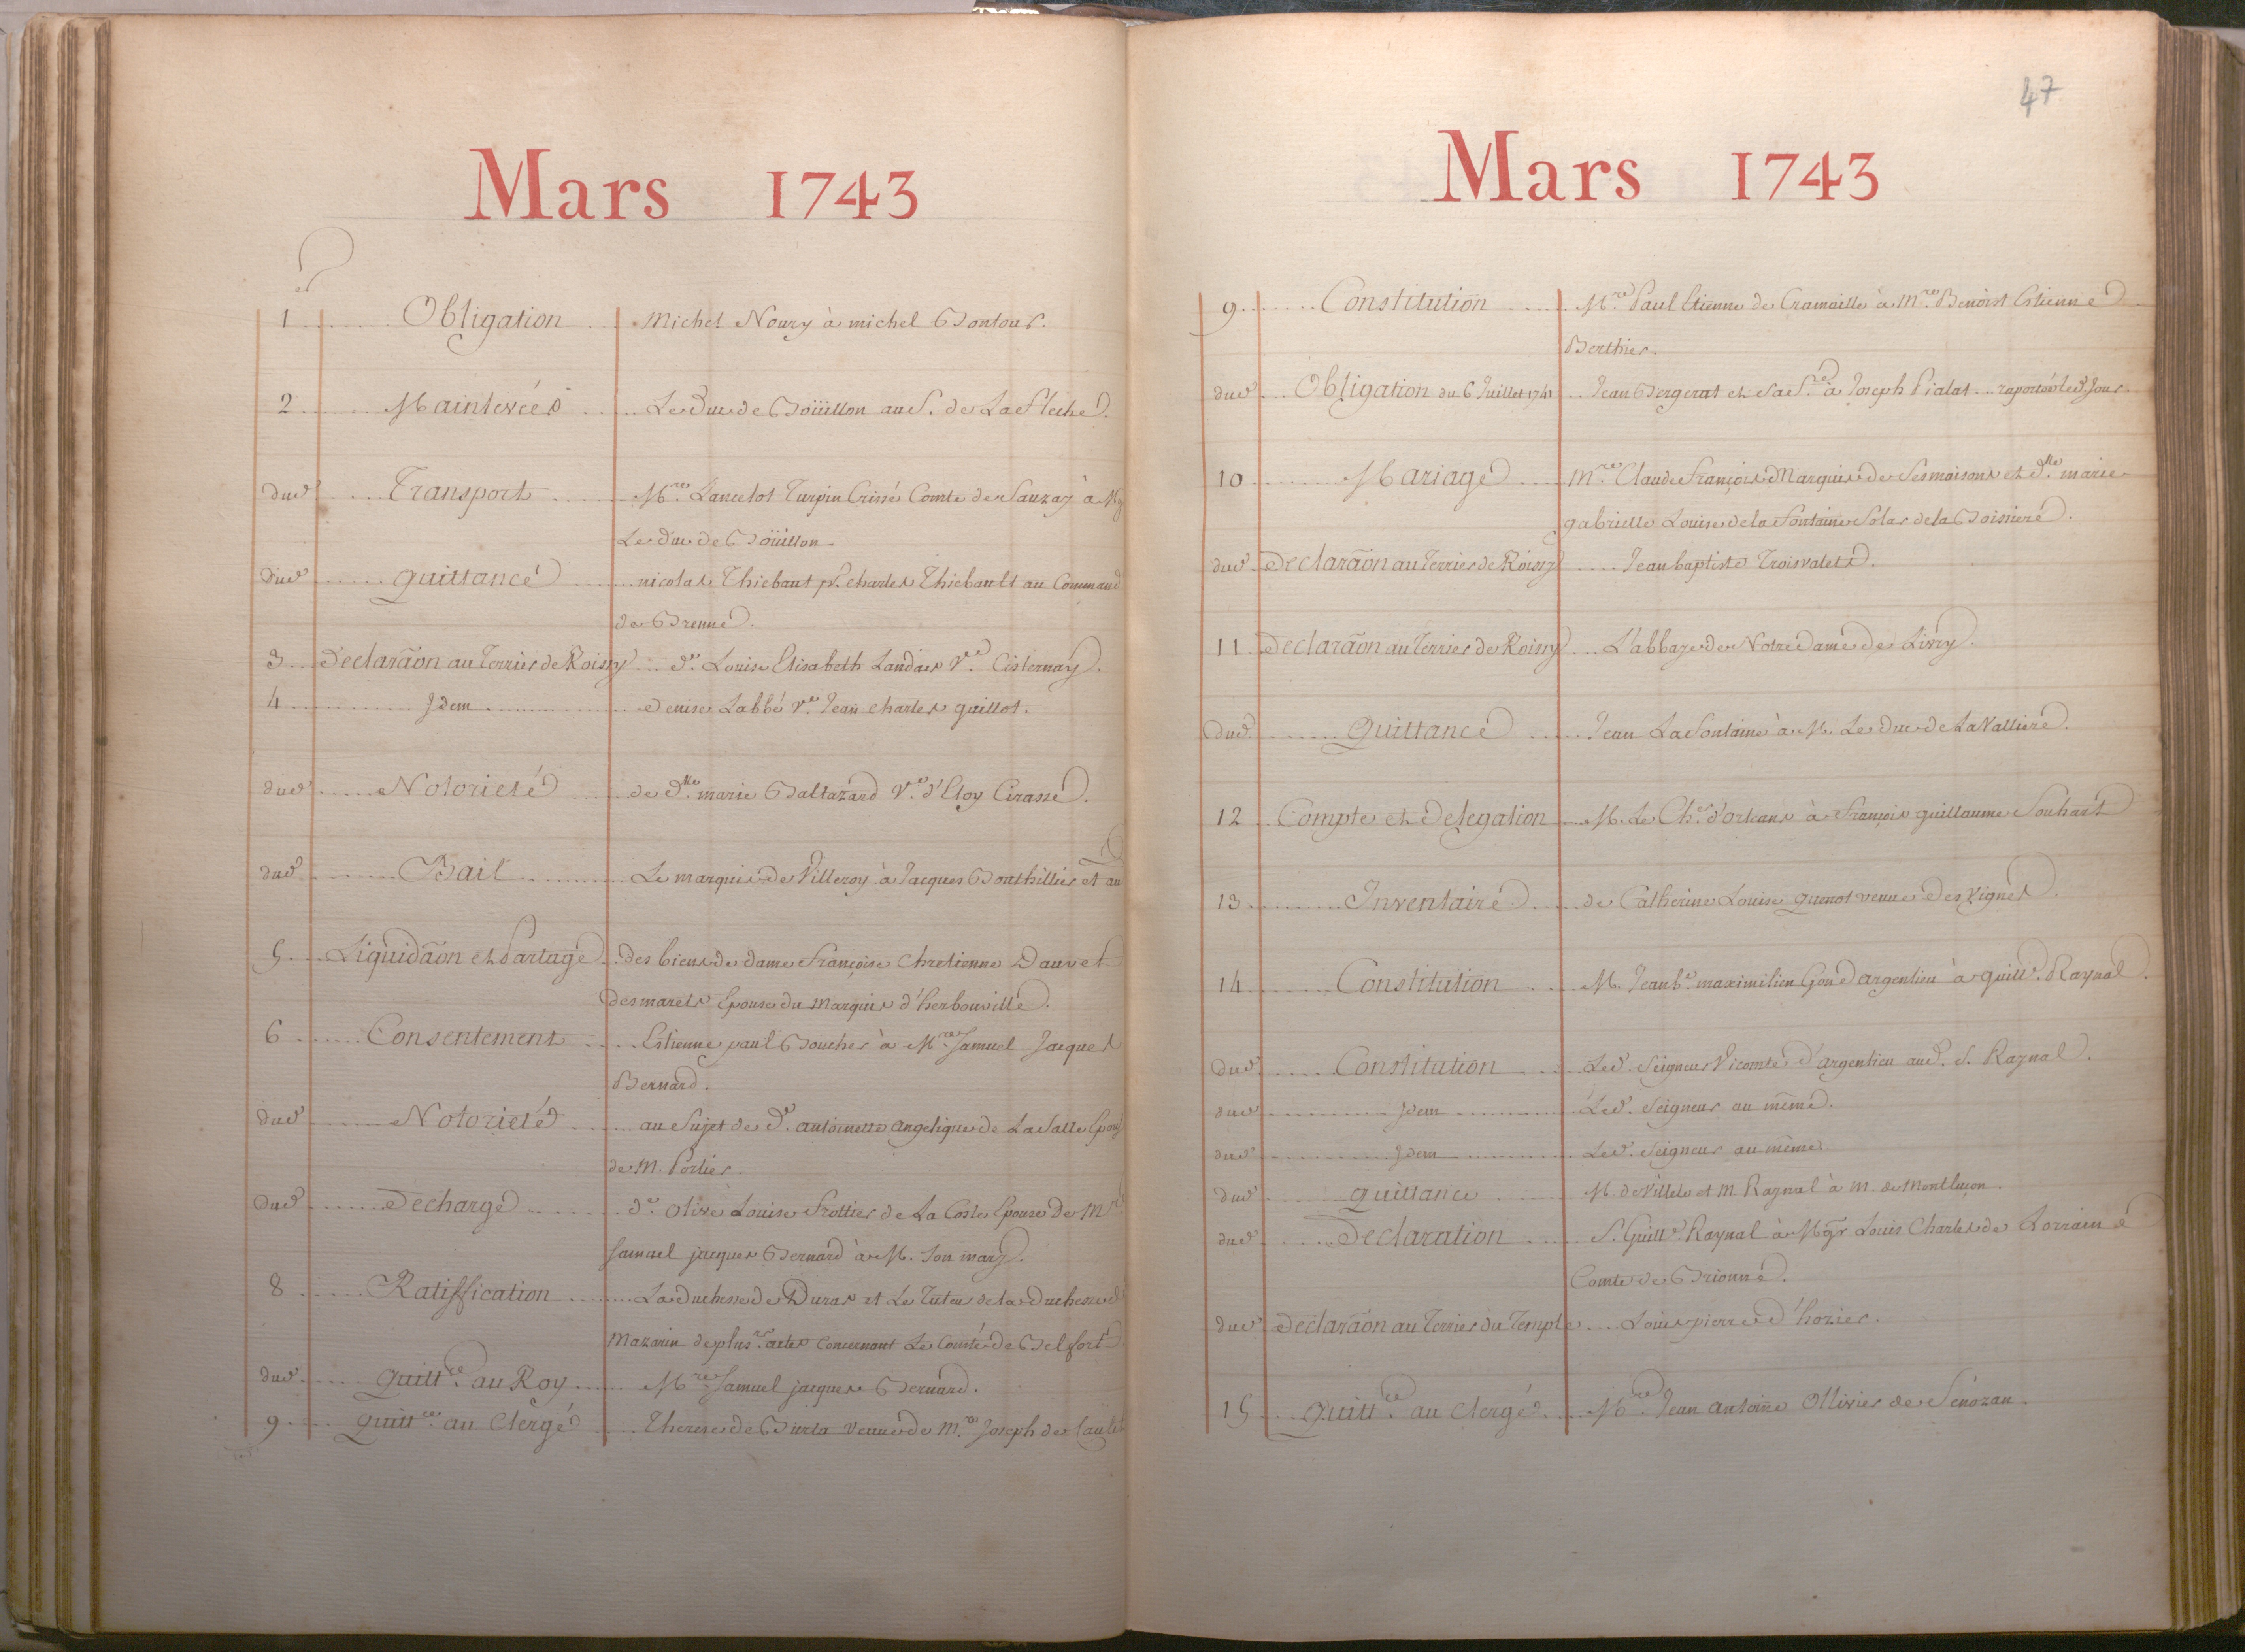 Mars 1743
1 Obligation Michel Noury à michel Bontour.
2 Mainlevées Le Duc de Boüillon au S. de La Fleche.
dud Transport Mre Lancelot Turpin Crissé Comte de Sanzay à Mg
Le Duc de Boüillon
dud quittance nicolas Thiebaut pr. charles Thiebault au Command
de Brenne.
3 Declaraõn au Terrier de Roissy de Louise Elisabeth Landais Ve. Cisternay.
4 Idem Denise Labbé Ve. Jean charles quillot.
dud Notorieté de dlle marie Baltazard Ve. d'Eloy Cirasse.
dud Bail Le marquis de Villeroy à Jacques Bouthillier et au
5 Liquidaõn et Partage des biens de dame Françoise Chretienne Dauvet
desmarets Epouse du Marquis d'herbouville.
6 Consentement Estienne paul Boucher à Mre Samuel Jacques
Bernard.
dud Notorieté au Sujet de De. antoinette angelique de La Salle Epous
de M. Portier.
dud Decharge de Olive Louise Frottier de La Coste Epouse De Mre
Samuel jacques Bernard à M. Son mary.
8 Ratiffication La Duchesse de Duras et Le Tuteur de la Duchesse de
Mazarin de plusrs. actes Concernant Le Comté de Belfort
dud Quittce. au Roy Mre Samuel jacques Bernard.
9 Quittce. au Clergé Therese de Burta veuve de Mre Joseph de Caulet
47
Mars 1743
9 Constitution Mre Paul Etienne de Cramaille à Mre. Benoist Estienne
Berthier.
dud Obligation du 6 Juillet 1741 Jean Bergerat et Sa fe. à Joseph Pialat raportée led. Jour
10 Mariage Mre. Claude François Marquis de Sesmaisons et dlle marie
gabrielle Louise de la Fontaine Solar de la Boissiere.
dud Declaraõn au Terrier de Roissy Jean baptiste Troisvalets.
11 Declaraõn au Terrier de Roissy L'abbaye de Notre Dame de Livry.
dud Quittance Jean La fontaine à M. Le Duc de La Valliere.
12 Compte et Delegation M. Le Cher. d'orleans à François guillaume Souhart
13 Inventaire de Catherine Louise Quenot veuve Des Vignes
14 Constitution M. Jean be. maximilien Gon d'argenlieu à guille. Raynal.
dud Constitution Led. Seigneur Vicomte d'argenlieu aud. S. Raynal.
dud Idem Led. Seigneur au même.
dud Idem Led. Seigneur au même
dud quittance M. de Villele et M. Raynal à M. de Montluçon.
dud Declaration S. Guille. Raynal à Mgr Louis Charles de Lorraine
Comte de Brionne.
dud Declaraõn au Terrier du Temple Louis pierre d'hozier.
15 Quittce. au Clergé Mre. Jean Antoine Ollivier de Senozan.